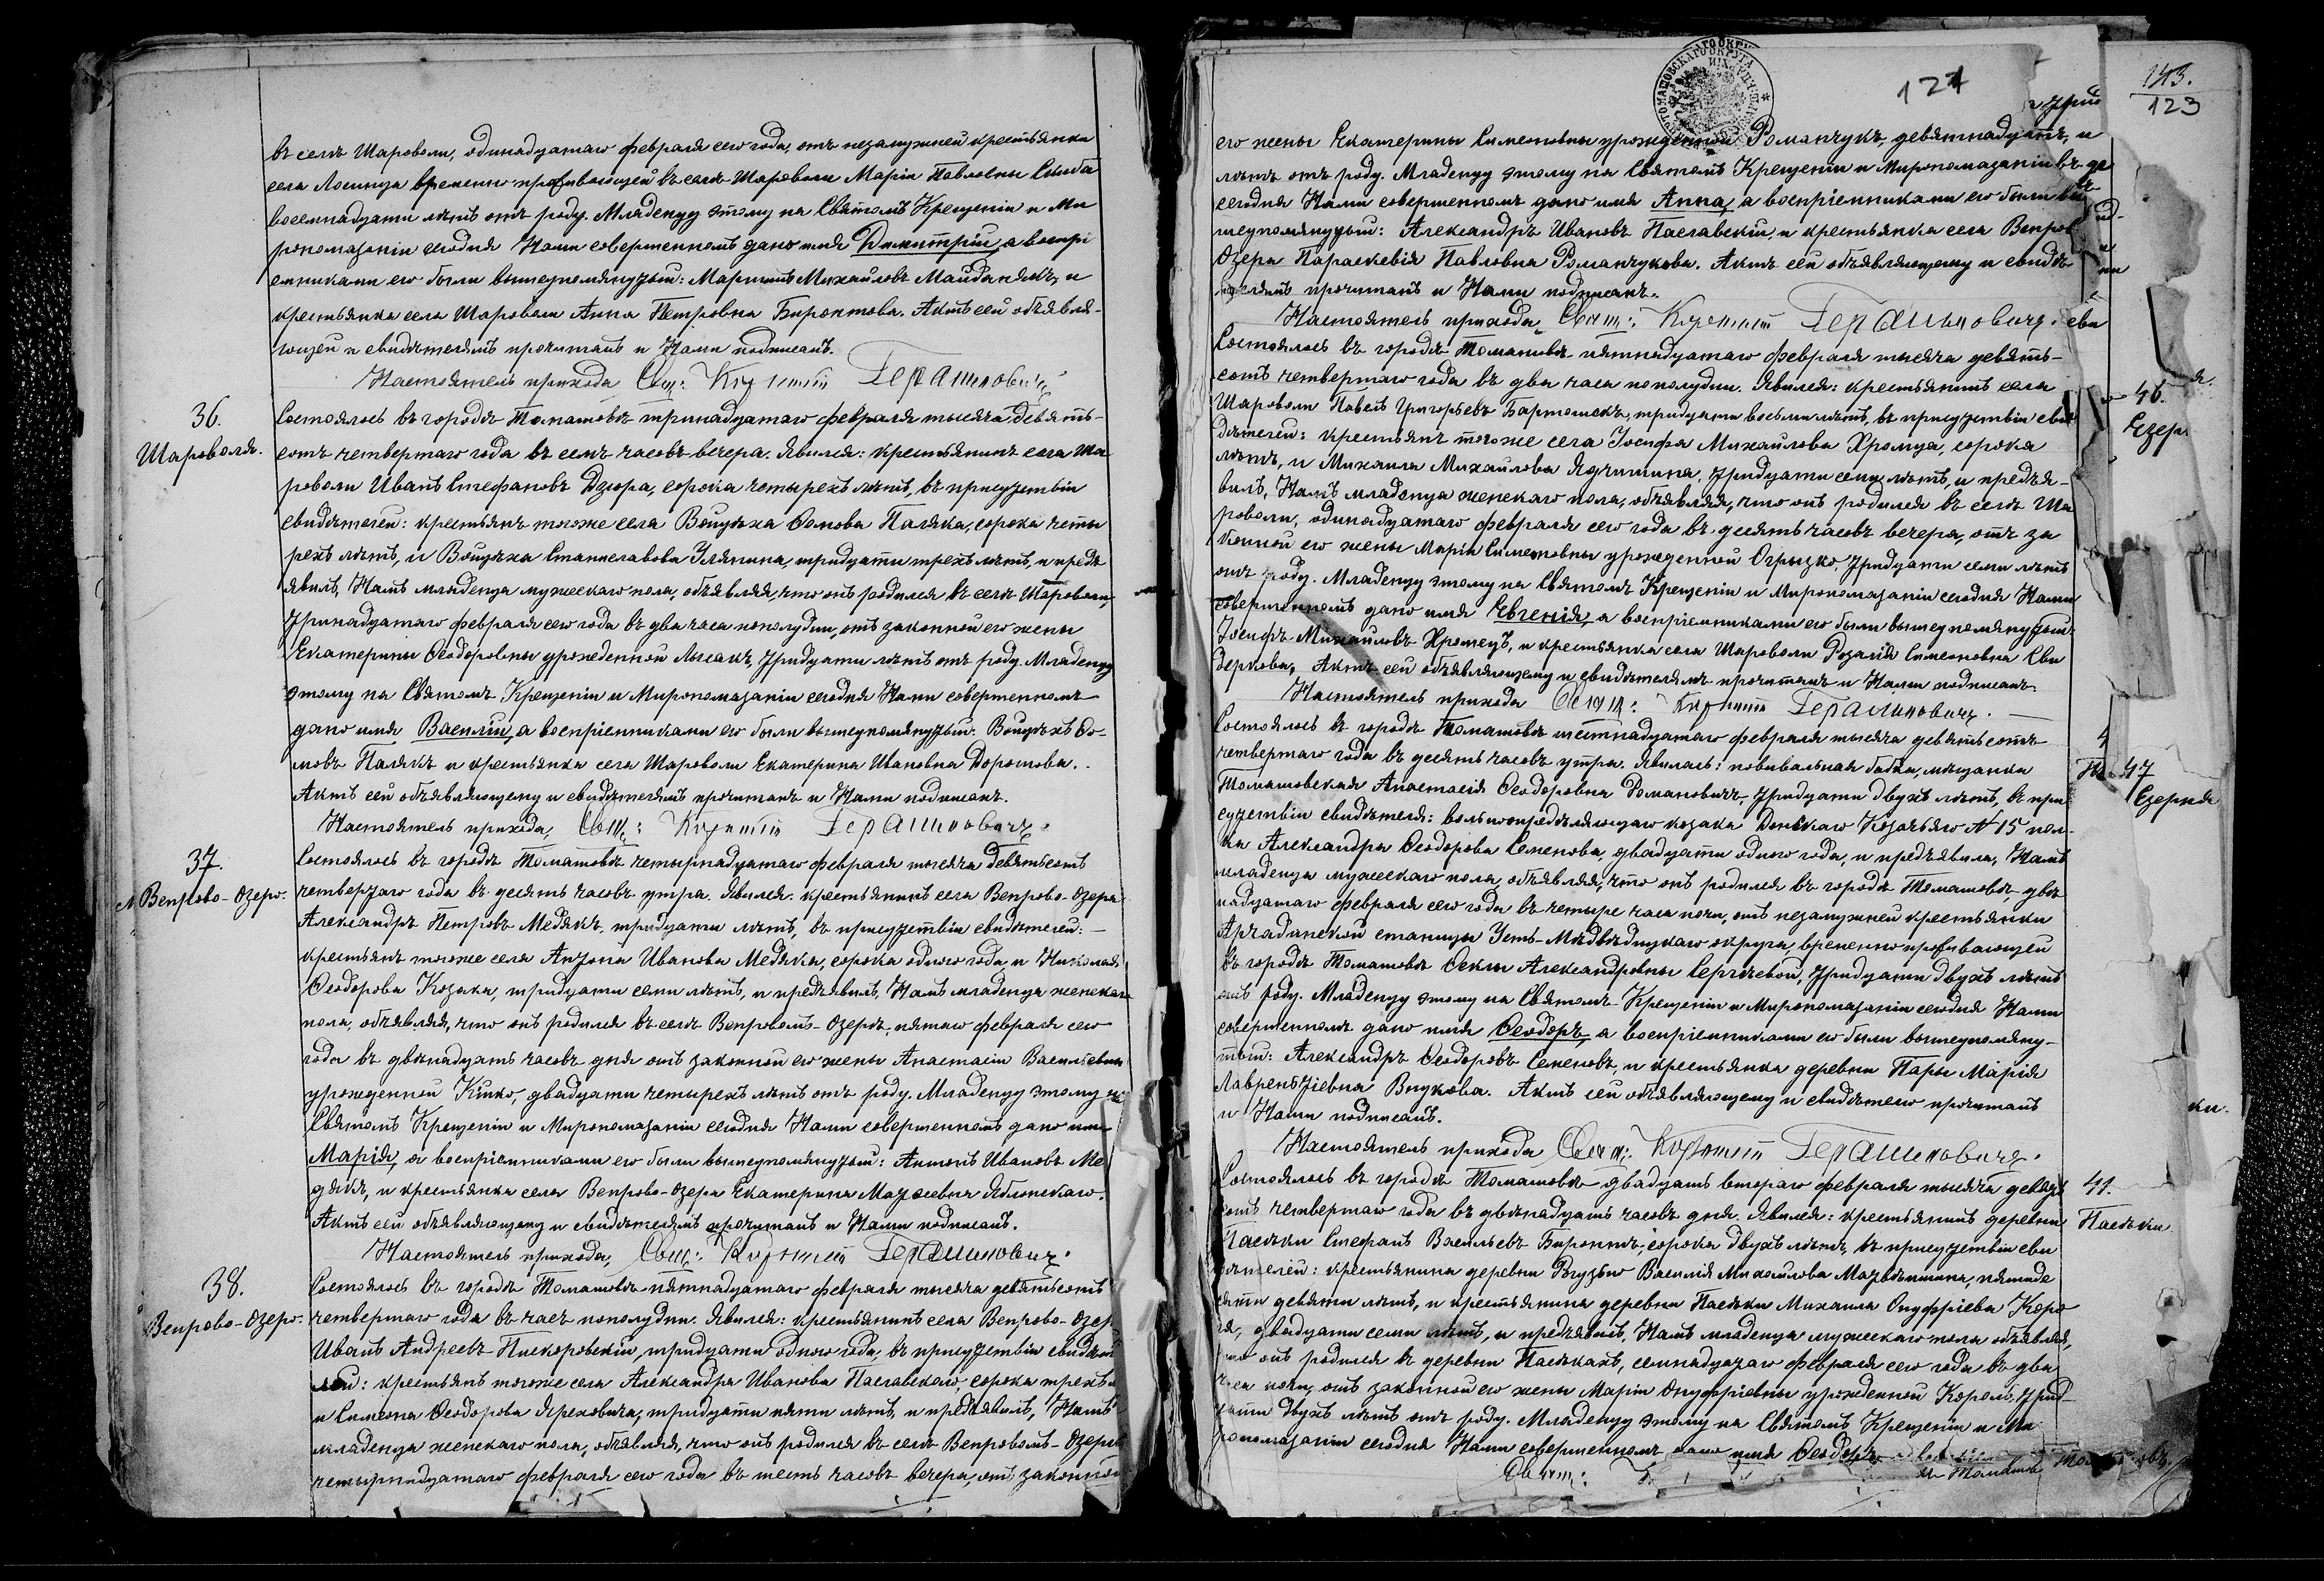 въ селѣ Шароволи, одинадцатаго февраля сего года, отъ незамужней крестьянки
села Лосинца временно проживающей въ селѣ Шароволи Маріи Павловны
восемнадцати лѣтъ отъ роду. Младенцу этому на Святомъ Крещеніи и Ми
ропомазаніи сегодня Нами совершенномъ дано имя Димитрій, а воспрі
емниками его были вышеупомянутый: Мартинъ Михайловъ Майданякъ, и
крестьянка села Шароволи Анна Петровна Биронтова. Актъ сей объявля-
ющей и свидѣтелямъ прочитанъ и Нами подписанъ.
Настоятель прихода Свящ: Герасимовичъ
36.
Шароволя.
Состоялось въ городѣ Томашовѣ тринадцатаго февраля тысяча девять-
сотъ четвертаго года въ семъ часовъ вечера. Явился: крестьянинъ села Ша
роволи Иванъ Стефановъ Дзюра, сорока четырехъ лѣтъ, въ присутствіи
свидѣтелей: крестьянъ тогоже села Войцѣха Паляка, сорока четы
рехъ лѣтъ, и Войцѣха Станиславова Улянина, тридцати трехъ лѣтъ, и предъ
явилъ, Намъ младенца мужескаго пола, объявляя, что онъ родился въ селѣ Шароволи,
тринадцатаго февраля сего года въ два часа пополудни, отъ законной его жены
Екатерины Ѳеодоровны урожденной Лысакъ, тридцати лѣтъ отъ роду. Младенцу
этому на Святомъ Крещеніи и Миропомазаніи сегодня Нами совершенномъ
дано имя Василій, а воспріемниками его были вышеупомянутый: Войцѣхъ
Палякъ и крестьянка села Шароволи Екатерина Ивановна Дорошова.
Актъ сей объявляющему и свидѣтелямъ прочитанъ и Нами подписанъ.
Настоятель прихода, Свящ: Герасимовичъ.
37.
Венрово-Озеро.
Состоялось въ городѣ Томашовѣ четырнадцатаго февраля тысяча девятьсотъ
четвертаго года въ десять часовъ утра. Явился: крестьянинъ села Венрово-Озера
Александръ Петровъ Медякъ, тридцати лѣтъ, въ присутствіи свидѣтелей:
крестьянъ тогоже села Антона Иванова Медяка, сорока одного года, и Николая
Ѳеодорова Козака, тридцати семи лѣтъ, и предъявилъ, Намъ младенца женскаго
пола, объявляя, что онъ родился въ селѣ Венровомъ-Озерѣ, пятаго февраля сего
года въ двѣнадцать часовъ дня отъ законной его жены Анастасіи Васильевны
урожденной Кицко, двадцати четырехъ лѣтъ отъ роду. Младенцу этому на
Святомъ Крещеніи и Миропомазаніи сегодня Нами совершенномъ дано имя
Марія, а воспріемниками его были вышеупомянутый: Антонъ Ивановъ Ме
дякъ, и крестьянка села Венрово-Озера Екатерина
Актъ сей объявляющему и свидѣтелямъ прочитанъ и Нами подписанъ.
Настоятель прихода, Свящ: Герасимовичъ.
38.
Венрово-Озеро.
Состоялось въ городѣ Томашовѣ пятнадцатаго февраля тысяча девятьсотъ
четвертаго года въ часъ пополудни. Явился: крестьянинъ села Венрово-Озера
Иванъ Андреевъ Пискоровскій, тридцати одного года, въ присутствіи свидѣте
лей: крестьянъ тогоже села Александра Иванова Паславскаго, сорока трехъ
и Симеона Ѳеодорова Яреховича, тридцати пяти лѣтъ, и предъявилъ, Намъ
младенца женскаго пола, объявляя, что онъ родился въ селѣ Венровомъ-Озерѣ
четырнадцатаго февраля сего года въ шесть часовъ вечера, отъ законной
121
143.
123
его жены Екатерины Симеоновны урожденной Романчукъ, девятнадцати
лѣтъ отъ роду. Младенцу этому на Святомъ Крещеніи и Миропомазаніи
сегодня Нами совершенномъ дано имя Анна, а воспріемниками его были вы
шеупомянутый: Александръ Ивановъ Паславскій, и крестьянка села Венрово
Озера Параскевія Павловна Романчукова. Актъ сей объявляющему и свидѣ
телямъ прочитанъ и Нами подписанъ.
Настоятель прихода, Свящ: Герасимовичъ.
Состоялось въ городѣ Томашовѣ пятнадцатаго февраля тысяча девять-
сотъ четвертаго года въ два часа пополудни. Явился: крестьянинъ села
Шароволи Павелъ Григорьевъ Бартошекъ, тридцати восьми лѣтъ, въ присутствіи сви
дѣтелей: крестьянъ тогоже села Іосифа Михайлова Хромца, сорока
лѣтъ, и Михаила Михайлова Ядчишина, тридцати семи лѣтъ, и предъя-
вилъ, Намъ младенца женскаго пола, объявляя, что онъ родился въ селѣ Ша
роволи, одинадцатаго февраля сего года въ десять часовъ вечера, отъ за
конной его жены Маріи Симеоновны урожденной Огрызко, тридцати семи лѣтъ
отъ роду. Младенцу этому на Святомъ Крещеніи и Миропомазаніи сегодня Нами
совершенномъ дано имя Евгенія, а воспріемниками его были вышеупомянутый
Іосифъ Михайловъ Хромецъ, и крестьянка села Шароволи Розалія Симеоновна Сви
деркова. Актъ сей объявляющему и свидѣтелямъ прочитанъ и Нами подписанъ.
Настоятель прихода Свящ: Герасимовичъ.
Состоялось въ городѣ Томашовѣ шестнадцатаго февраля тысяча девятьсотъ
четвертаго года въ десять часовъ утра. Явилась: повивальная бабка, мѣщанка
Томашовская Анастасія Ѳеодоровна Романовичъ, тридцати двухъ лѣтъ, въ при
сутствіи свидѣтеля: вольноопредѣляющаго козака Донскаго Козачьяго № 15 пол-
ка Александра Ѳеодорова Семенова, двадцати одного года, и предъявила, Намъ
младенца мужескаго пола, объявляя, что онъ родился въ городѣ Томашовѣ, двѣ
надцатаго февраля сего года въ четыре часа ночи, отъ незамужней крестьянки
Арчадинской станицы Усть-Мѣдвѣдицкаго округа, временно проживающей
въ городѣ Томашовѣ Ѳеклы Александровны Сергѣевой, тридцати двухъ лѣтъ
отъ роду. Младенцу этому на Святомъ Крещеніи и Миропомазаніи сегодня Нами
совершенномъ дано имя Ѳеодоръ, а воспріемниками его были вышеупомяну-
тый: Александръ Ѳеодоровъ Семеновъ, и крестьянка деревни Пары Марія
Лаврентіевна Внукова. Актъ сей объявляющему и свидѣтелю прочитанъ
и Нами подписанъ.
Настоятель прихода Свящ: Герасимовичъ.
Состоялось въ городѣ Томашовѣ двадцать втораго февраля тысяча девять
сотъ четвертаго года въ двѣнадцать часовъ дня. Явился: крестьянинъ деревни
Пасѣки Стефанъ Васильевъ Биронтъ, сорока двухъ лѣтъ, въ присутствіи сви
дѣтелей: крестьянина деревни Василія Михайлова пятиде
сяти девяти лѣтъ, и крестьянина деревни Пасѣки Михаила Онуфріева Коро
ля, двадцати семи лѣтъ, и предъявилъ, Намъ младенца мужескаго пола объявляя,
что онъ родился въ деревни Пасѣкахъ, семнадцатаго февраля сего года въ два
часа ночи, отъ законной его жены Маріи Онуфріевны урожденной Король, трид
цати двухъ лѣтъ отъ роду. Младенцу этому на Святомъ Крещеніи и Ми
ропомазаніи сегодня Нами совершенномъ дано имя Ѳеодоръ
Свящ:
46.
Езер
47
Езерня
41.
Пасѣки